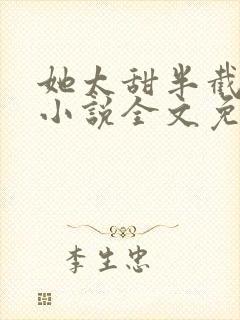 她太甜半截
小说全文免
李生忠